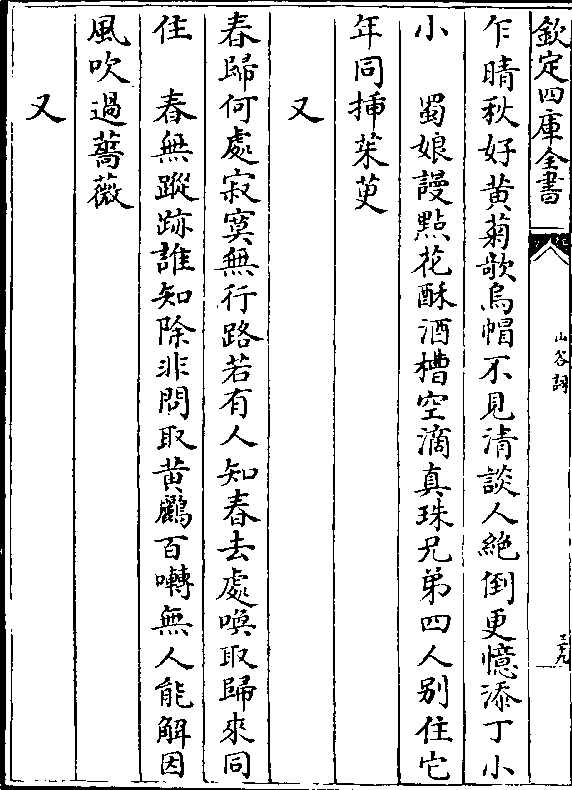 欽定四庫全書
山谷詞
三十九
乍晴秋好黄菊欹烏帽不見清談人絶倒更憶添丁小
小　蜀娘謾點花酥酒槽空滴真珠兄弟四人别住它
年同揷茱萸
又
春歸何處寂寞無行路若有人知春去處喚取歸來同
住　春無蹤跡誰知除非問取黄鸝百囀無人能解因
風吹過薔薇
又